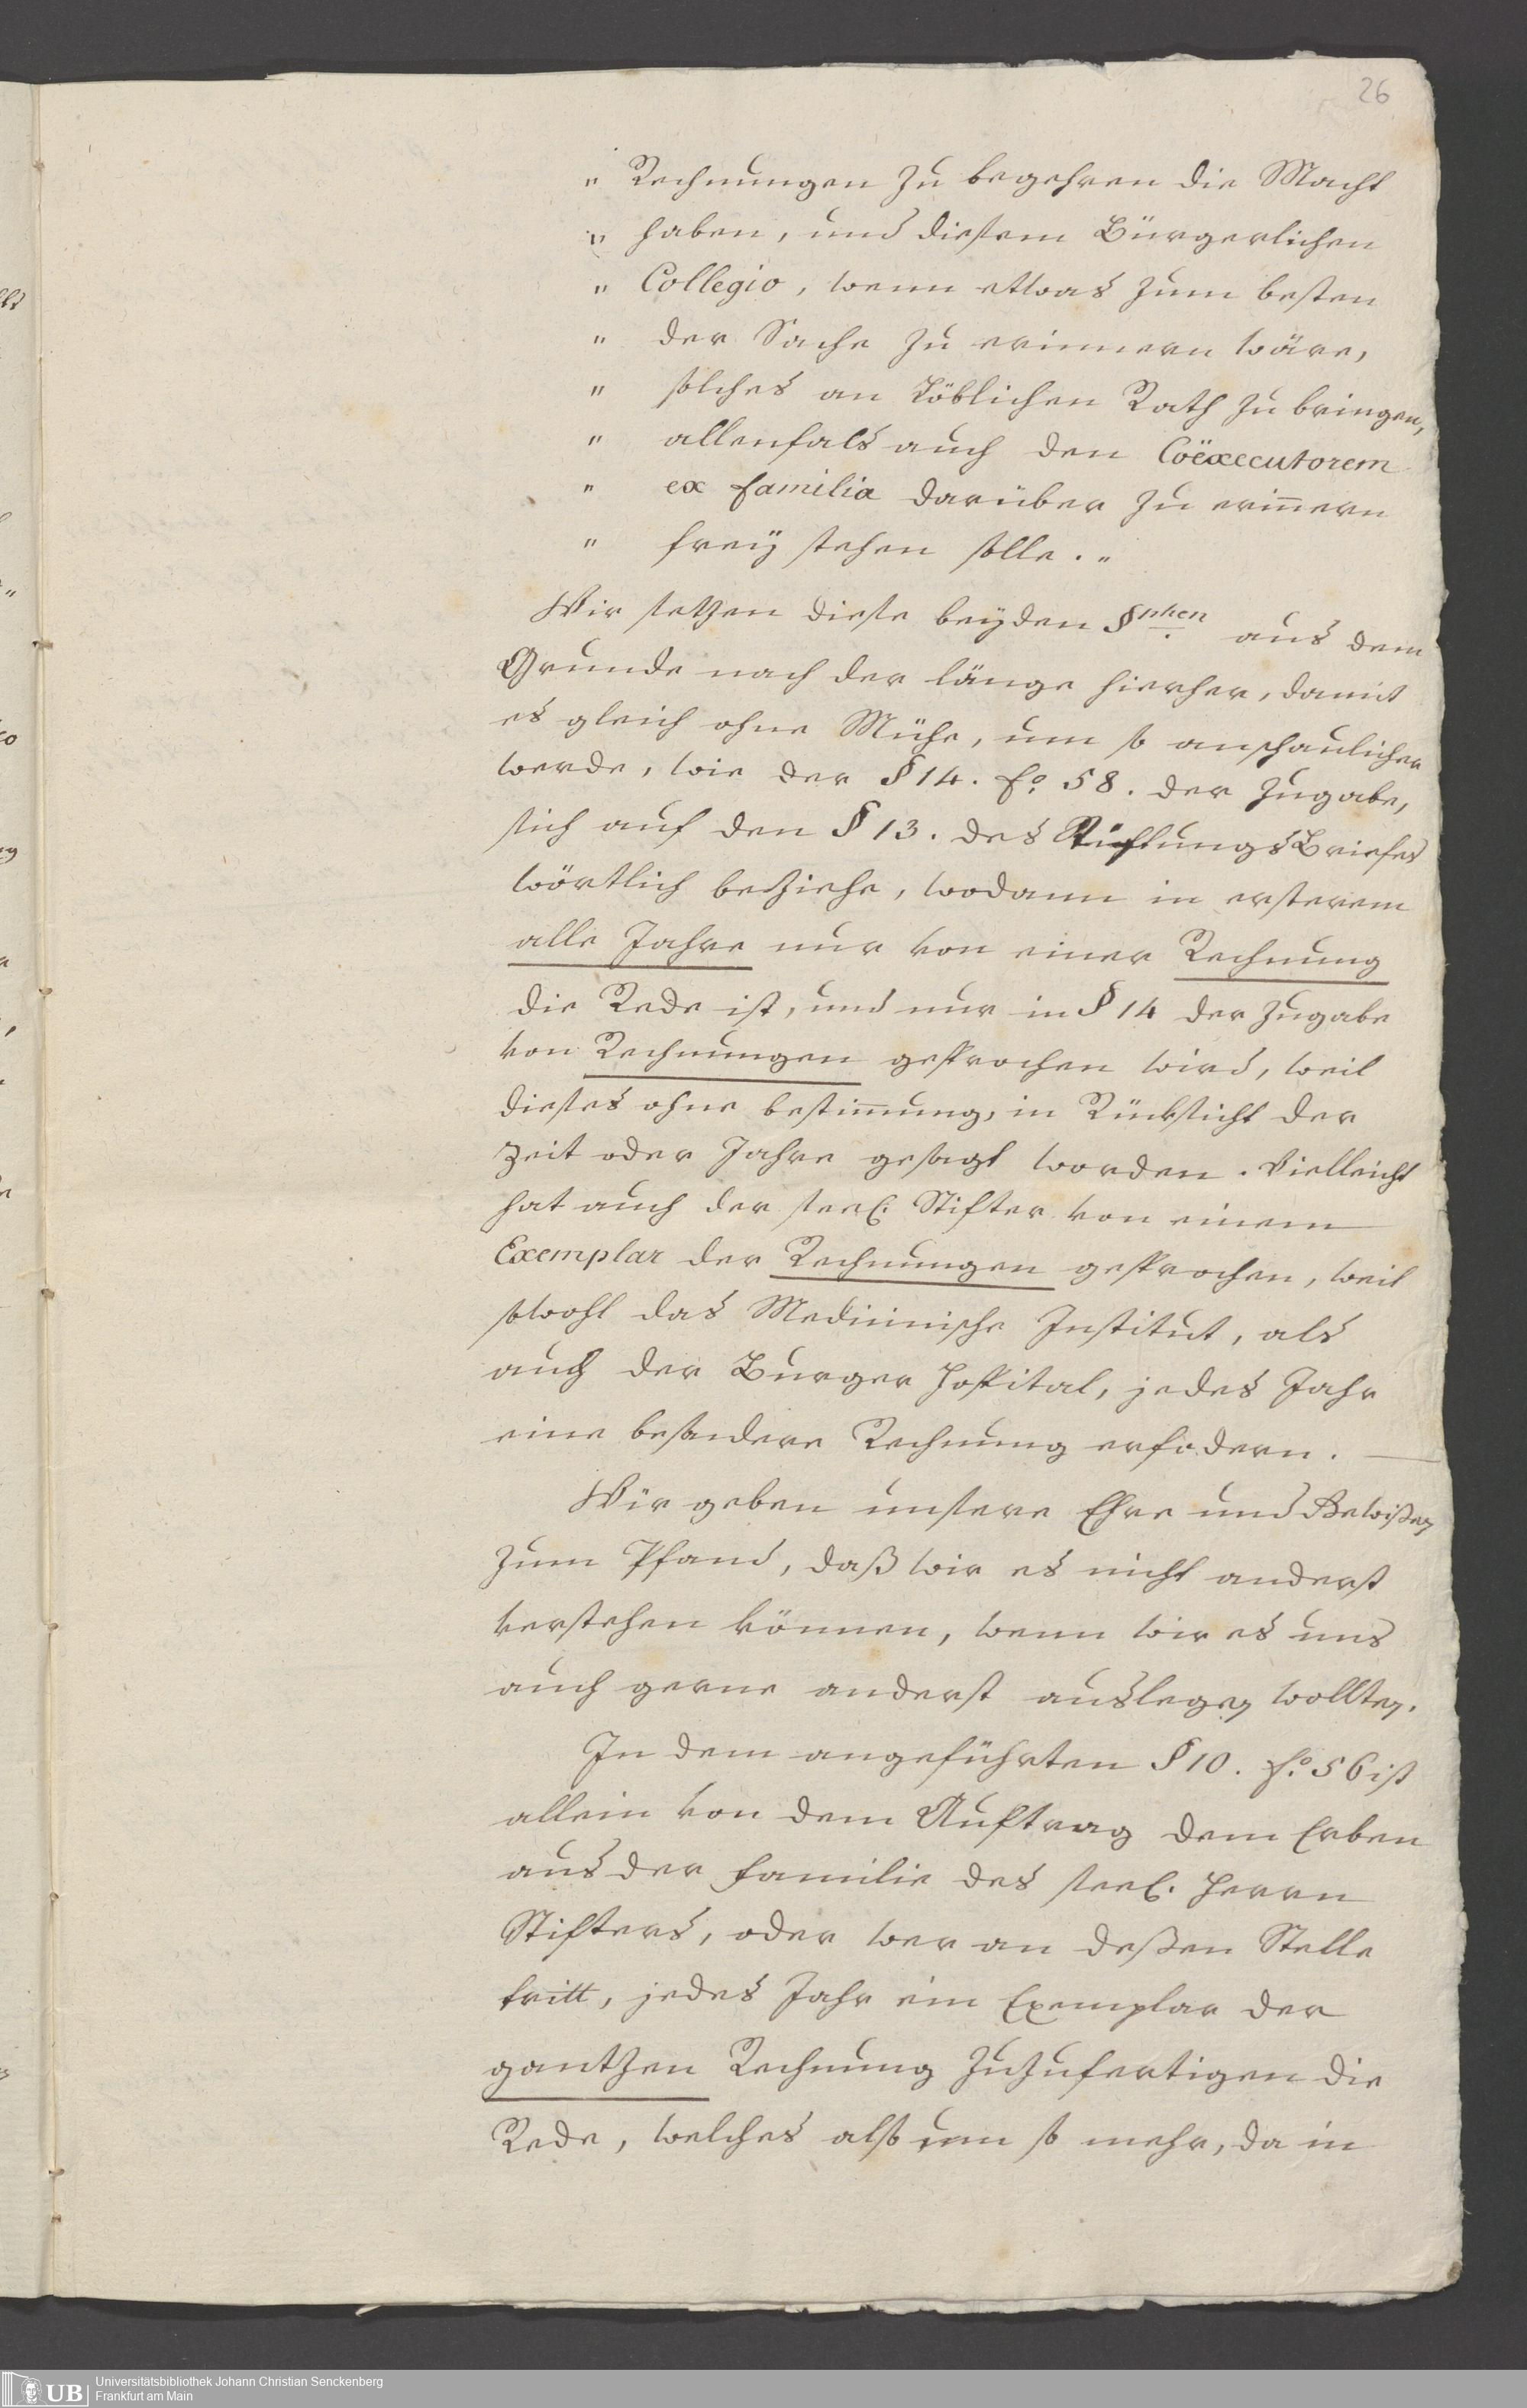 26
" Rechnungen zu begehren die Macht
" haben, und diesem Bürgerlichen
" Collegio, wenn etwas zum besten
" der Sache zu erinnern wäre,
" solches an Löblichen Rath zu bringen,
" allenfals auch den Coëxecutorem
" ex familia darüber zu erin̄ern
" freÿ stehen solle. "
Wir setzen diese beÿden §phen aus dem
Grunde nach der länge hierher, damit
es gleich ohne Mühe, um so anschaulicher
werde, wie der § 14. fo. 58. der Zugabe,
sich auf den § 13. des StiftungsBriefes
wörtlich beziehe, wodann in ersterem
alle Jahre nur von einer Rechnung
die Rede ist, und nur in § 14 der Zugabe
von Rechnungen gesprochen wird, weil
dieses ohne bestim̄ung, in Rücksicht der
Zeit oder Jahre gesagt worden. Vielleicht
hat auch der seel: Stifter von einem
Exemplar der Rechnungen gesprochen, weil
sowohl das Medicinische Institut, als
auch der Burger Hospital, jedes Jahr
eine besondere Rechnung erfodern.
Wir geben unsere Ehre und Gewißen
zum Pfand, daß wir es nicht anderst
verstehen können, wenn wir es uns
auch gerne anderst auslegen wollten.
In dem angeführten § 10. fo. 56 ist
allein von dem Auftrag dem Erben
aus der Familie des seel. Herrn
Stifters, oder wer an deßen Stelle
tritt, jedes Jahr ein Exemplar der
gantzen Rechnung zuzufertigen die
Rede, welches also um so mehr, da in
UB
Universitätsbibliothek Johann Christian Senckenberg
Frankfurt am Main